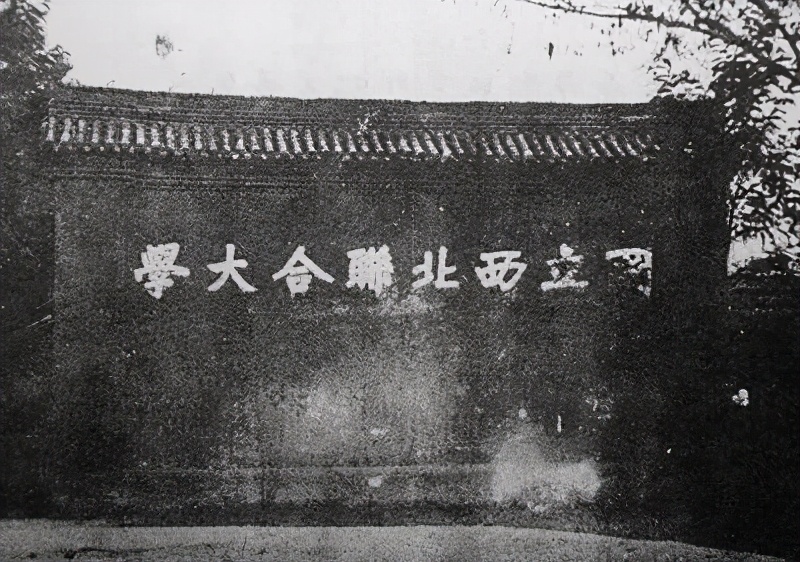 國立西北聯合大學